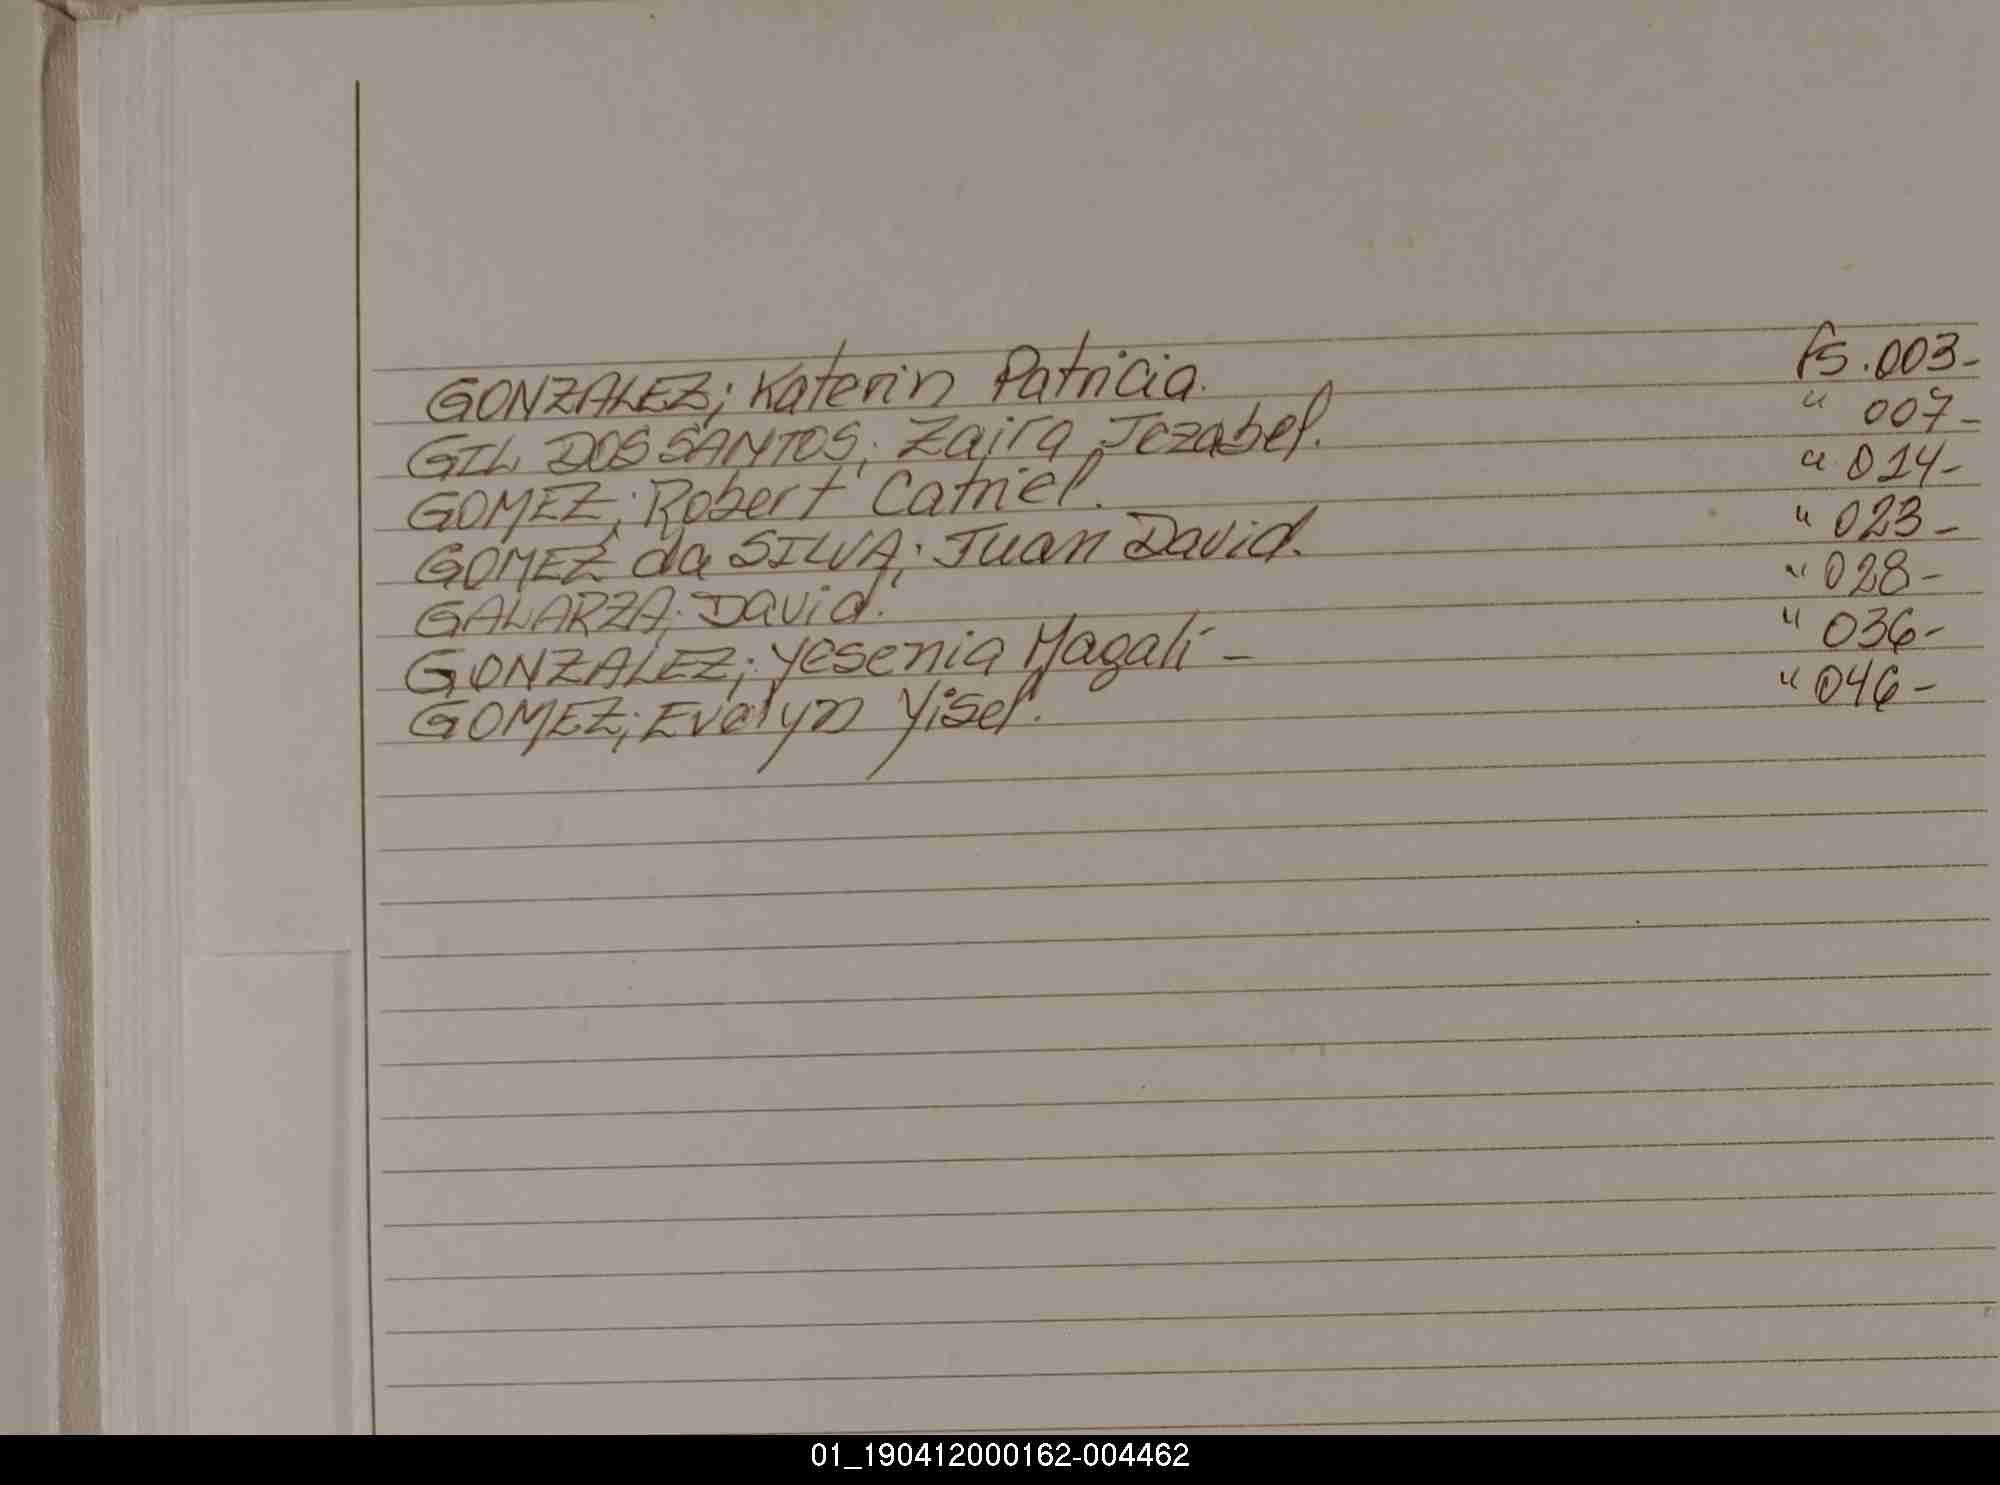 GONZALEZ; Katerin Patricia. fs. 003-
GIL DOS SANTOS; Zaira Jezabel. " 007-
GOMEZ; Robert Catriel. " 014-
GOMEZ da SILVA; Juan David. " 023-
GALARZA; David. " 028-
GONZALEZ; Yesenia Magalí - " 036-
GOMEZ; Evelyn Yisel. " 046-
01_190412000162-004462